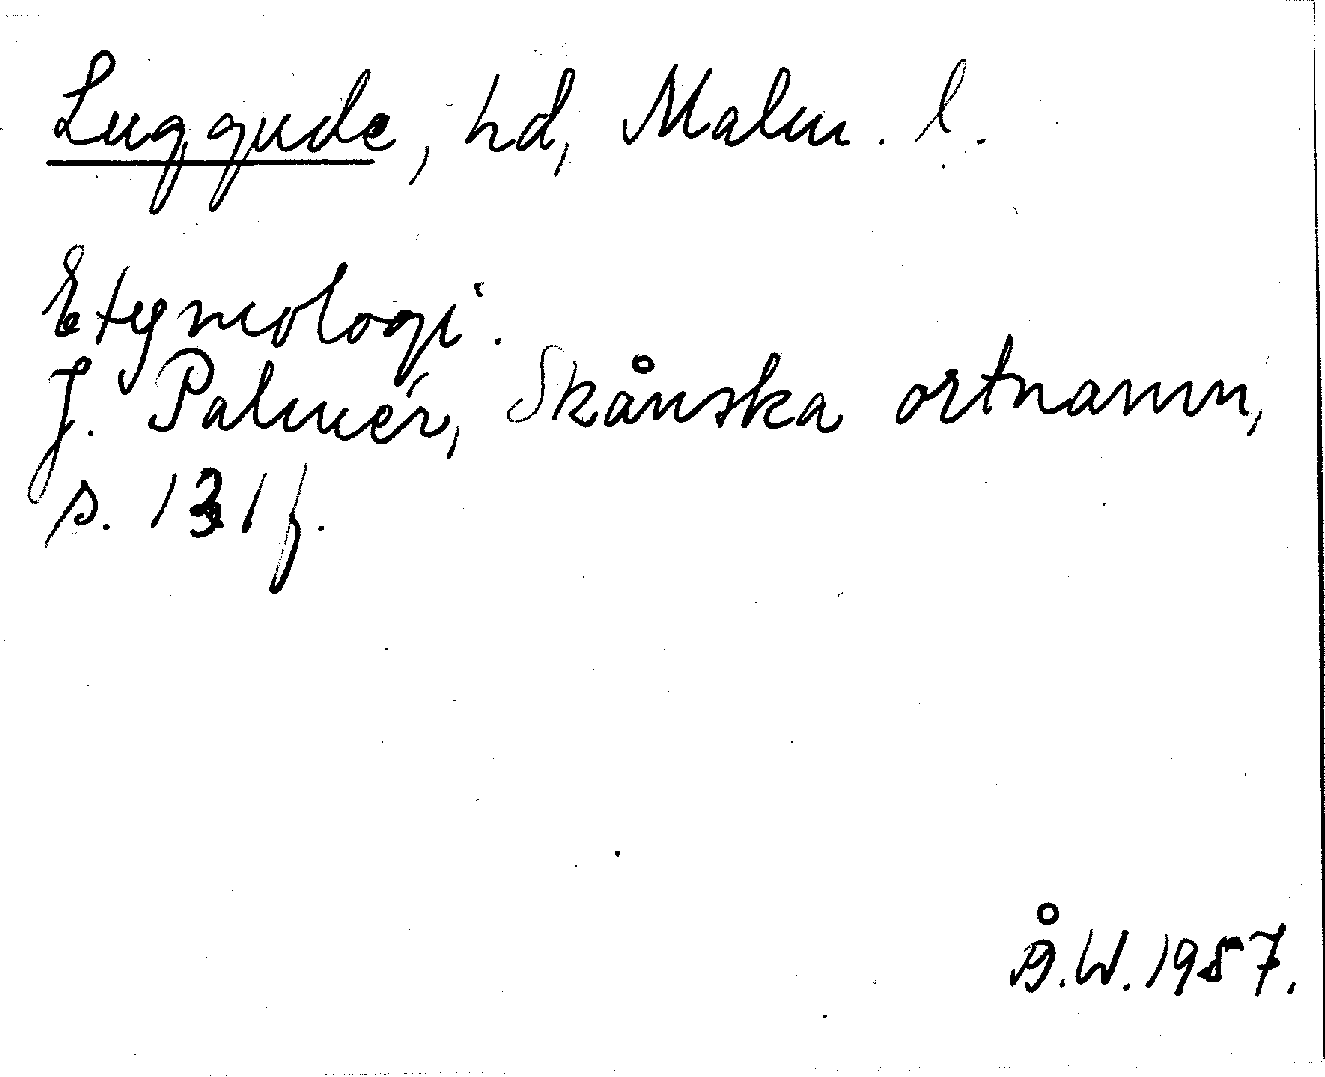 Luggude, hd, Malm. l.
Etymologi.
J. Palmér, Skånska ortnamn,
s. 131 f.
Å.W. 1987.